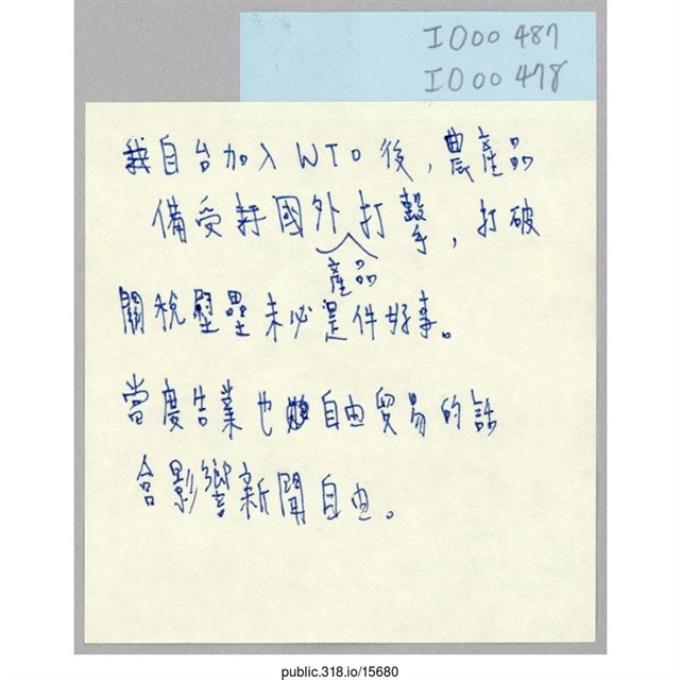 I000 487
I000 478
自台加入WTO後,農產品
備受國外產品打擊,打破
關稅壁壘未必是件好事。
當廣告業也自由貿易的話
會影響新聞自由。
public.318.io/15680